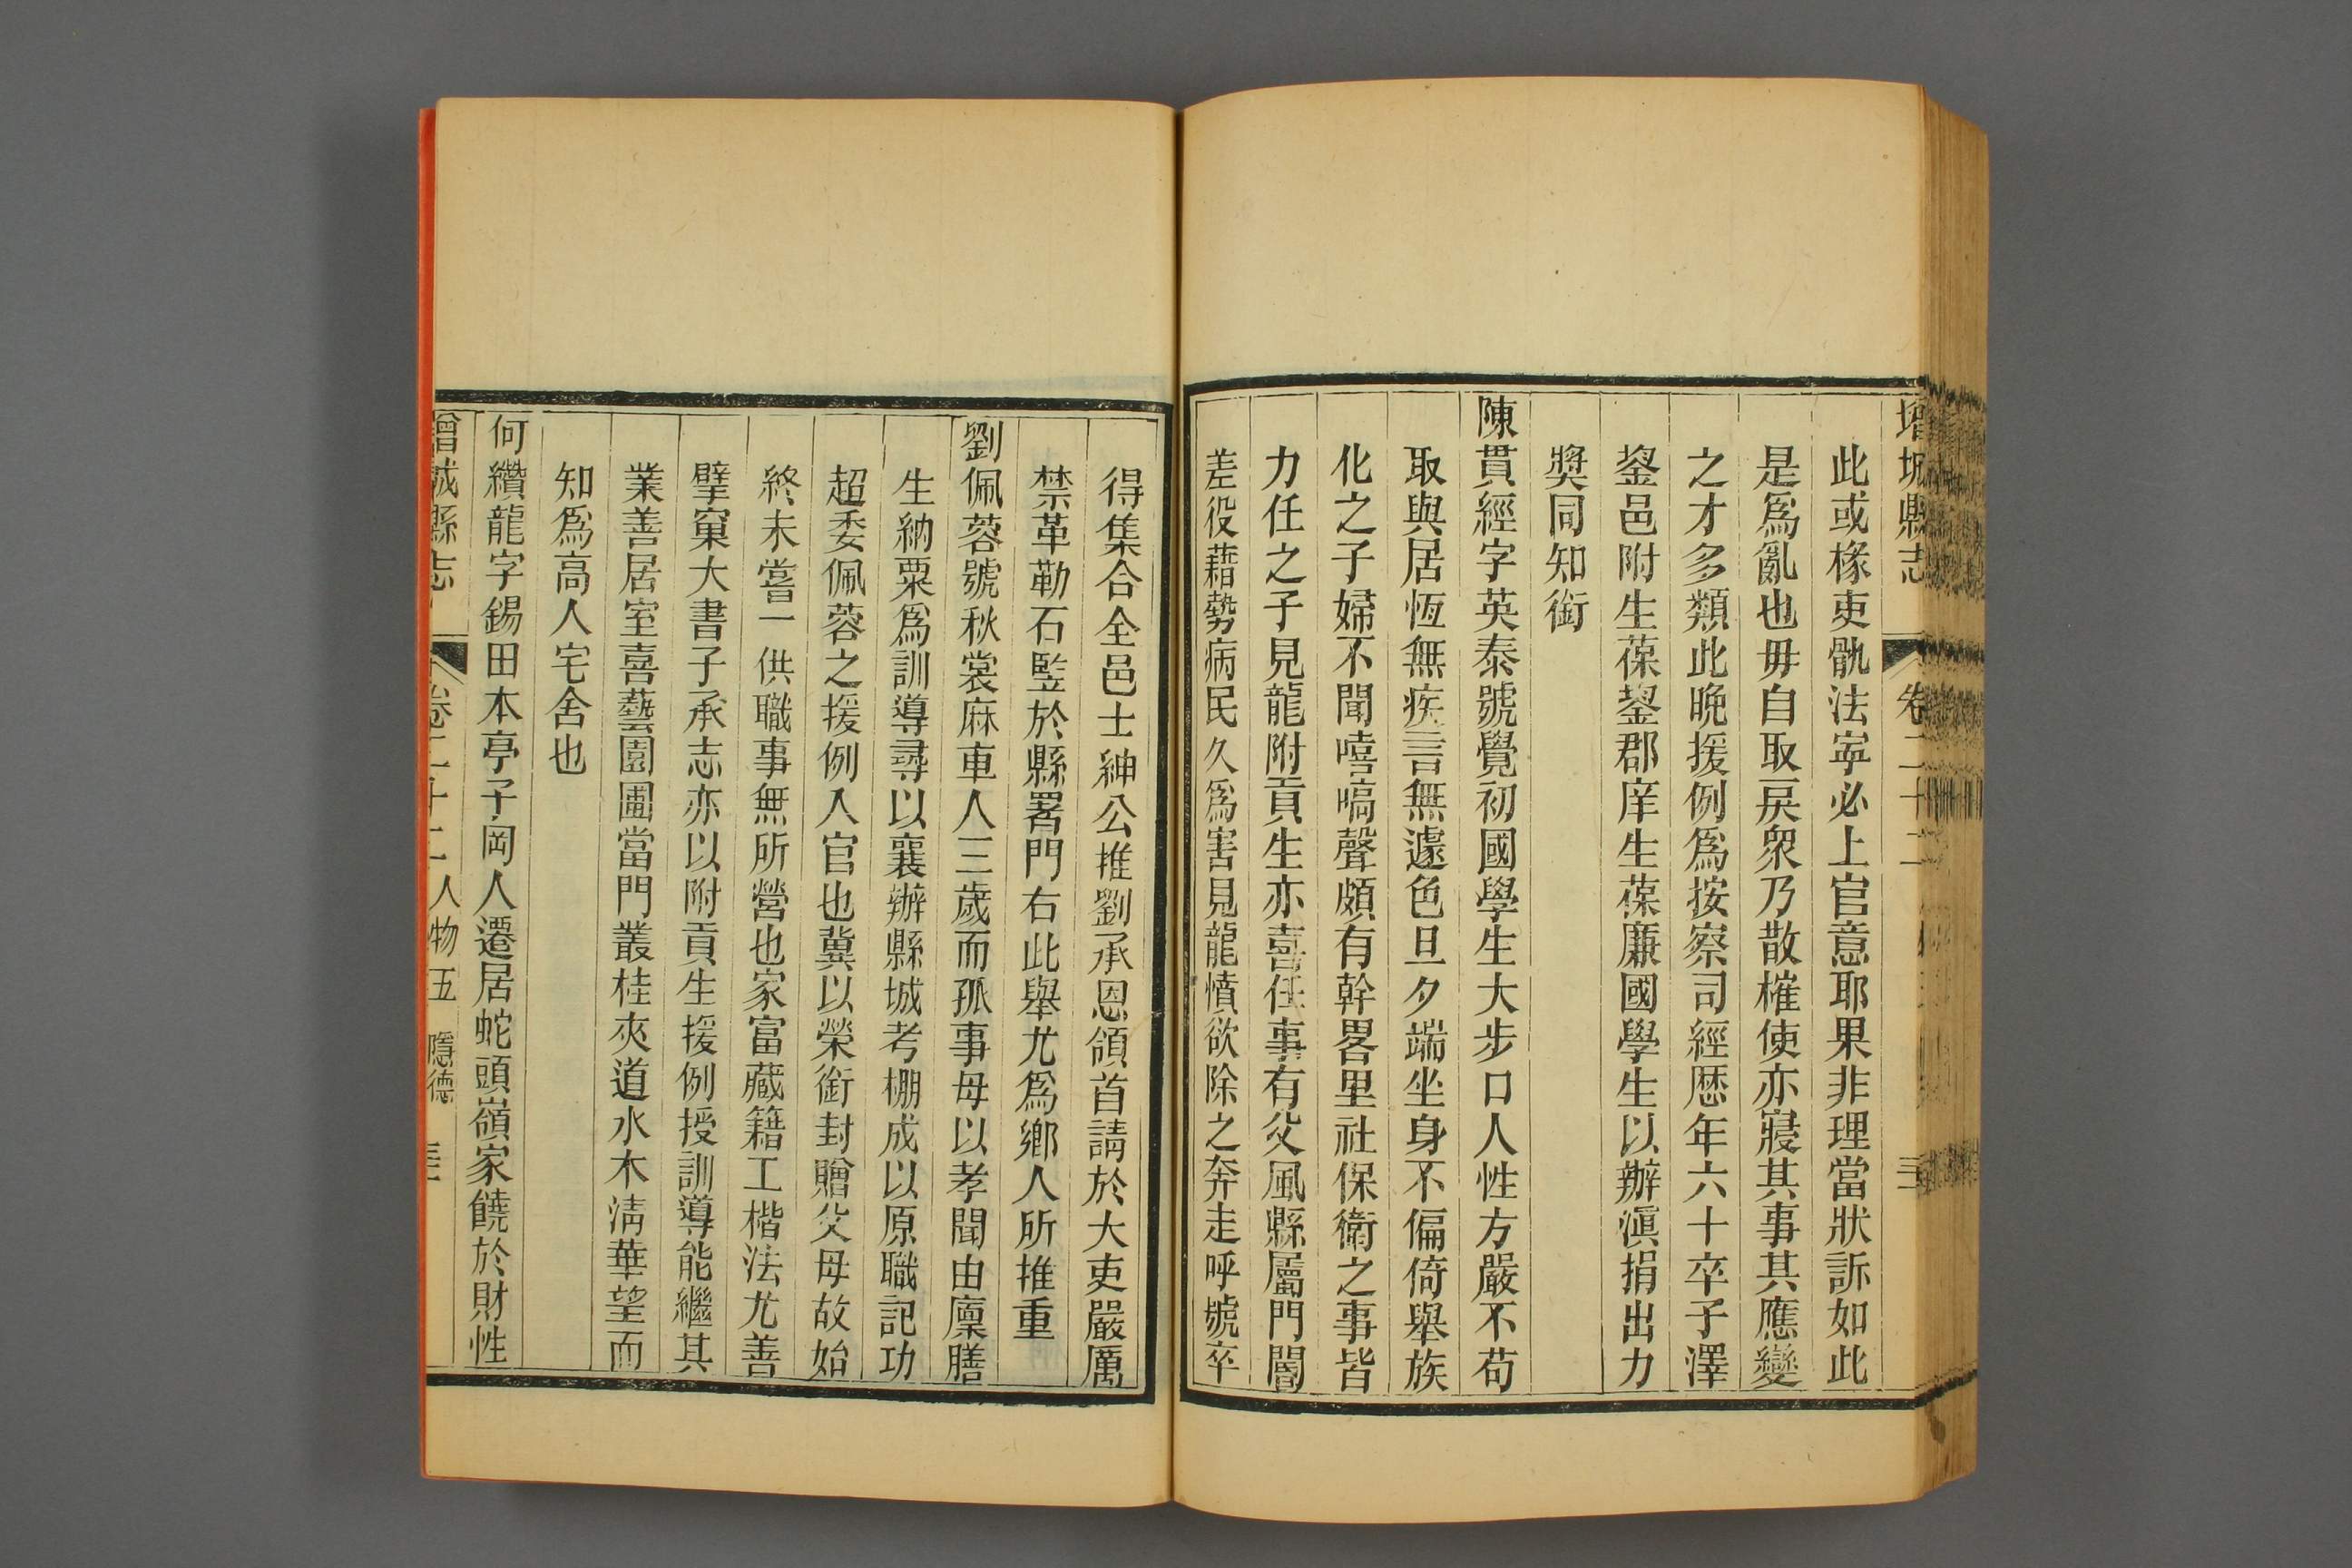 增城縣志 卷二十二
此或椽吏骩法寧必上官意耶果非理當狀訴如此
是爲亂也毋自取戾衆乃散榷使亦寢其事其應變
之才多類此晚援例爲按察司經歷年六十卒子澤
鋆邑附生葆鋆郡庠生葆廉國學生以辦滇捐出力
獎同知銜
陳貫經字英泰號覺初國學生大步口人性方嚴不苟
取與居恆無疾言無遽色旦夕端坐身不偏倚舉族
化之子婦不聞嘻嗃聲頗有幹畧里社保衛之事皆
力任之子見龍附貢生亦喜任事有父風縣屬門閽
差役藉勢病民久爲害見龍憤欲除之奔走呼號卒
得集合全邑士紳公推劉承恩領首請於大吏嚴厲
禁革勒石竪於縣署門右此舉尤爲鄉人所推重
劉佩蓉號秋裳麻車人三歲而孤事母以孝聞由廩膳
生納粟爲訓導尋以襄辦縣城考棚成以原職記功
超委佩蓉之援例入官也冀以榮銜封贈父母故始
終未嘗一供職事無所營也家富藏籍工楷法尤善
擘窠大書子承志亦以附貢生援例授訓導能繼其
業善居室喜藝園圃當門叢桂夾道水木淸華望而
知爲高人宅舍也
何纘龍字錫田本亭子岡人遷居蛇頭嶺家饒於財性
增城縣志 卷二十二 人物五 隱德